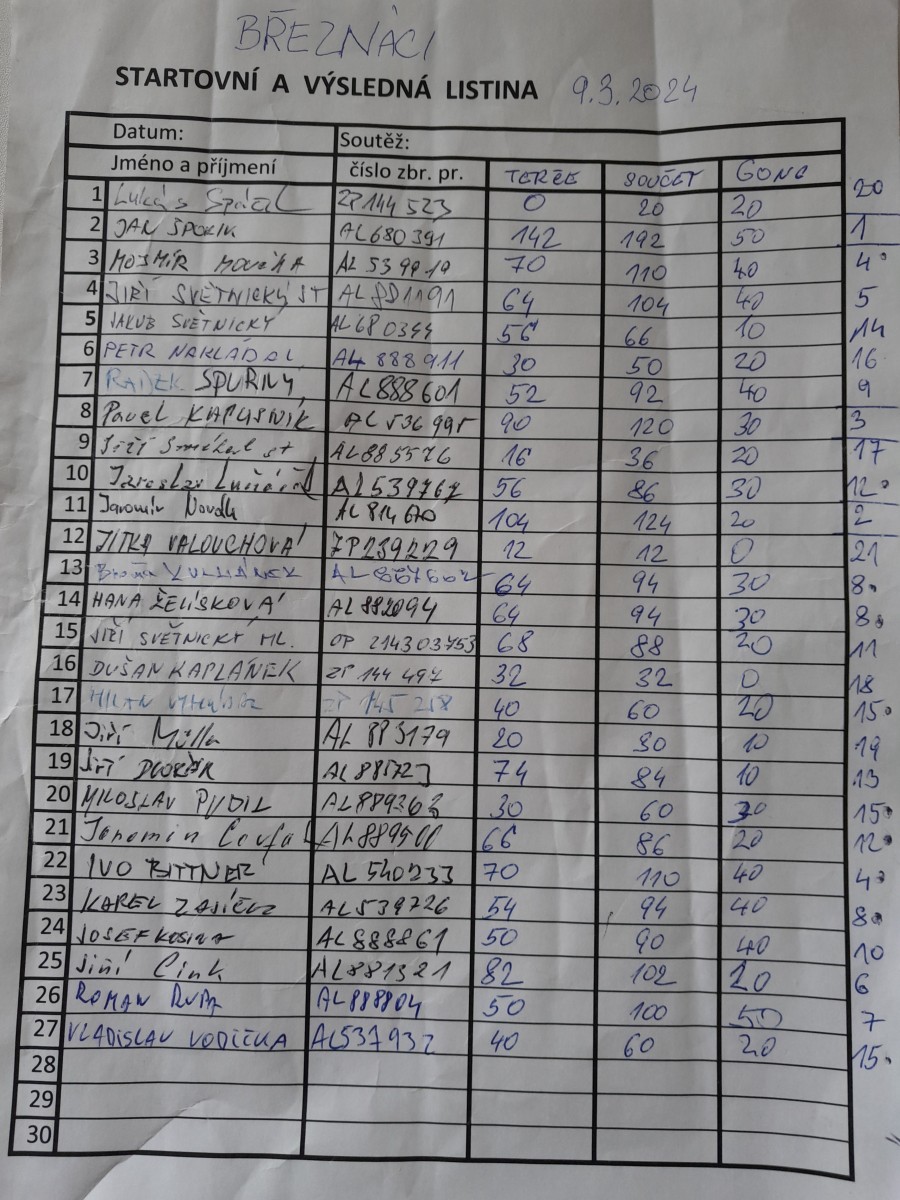 BŘEZNÁCI
STARTOVNÍ A VÝSLEDNÁ LISTINA 9.3.2024
Datum: Soutěž:
Jméno a příjmení číslo zbr. pr. TERČE SOUČET GONG
1 Lukáš ZP144523 0 20 20 20
2 JAN ŠPORIK AL680391 142 192 50 1
3 MOJMÍR AL 539919 70 110 40 4.
4 JIŘÍ SVĚTNICKÝ ST AL881191 64 104 40 5
5 JAKUB SVĚTNICKÝ AL680344 56 66 10 14
6 PETR NAKLÁDAL AL 888911 30 50 20 16
7 RADEK SPURNÝ AL888601 52 92 40 9
8 Pavel KAPUSNÍK AL536995 90 120 30 3
9 Jiří st AL885576 16 36 20 17
10 Jaroslav AL539767 56 86 30 12.
11 Jaromír Novák AL814670 104 124 20 2
12 JITKA VALOUCHOVÁ ZP239229 12 12 0 21
13 AL867602 64 94 30 8.
14 HANA ŽELÍSKOVÁ AL882094 64 94 30 8.
15 JIŘÍ SVĚTNICKÝ ML. OP 214303753 68 88 20 11
16 DUŠAN KAPLÁNEK ZP 144497 32 32 0 18
17 MILAN ZP 145 258 40 60 20 15.
18 Jiří AL 883179 20 30 10 19
19 JIŘÍ DVOŘÁK AL885723 74 84 10 13
20 MILOSLAV PYDIL AL889363 30 60 30 15.
21 Jaromír AL889500 66 86 20 12.
22 IVO BITTNER AL 540233 70 110 40 4.
23 KAREL AL539726 54 94 40 8.
24 JOSEF KOSINA AL888861 50 90 40 10
25 Jiří Cink AL881321 82 102 20 6
26 ROMAN AL888804 50 100 50 7
27 VLADISLAV VODIČKA AL537932 40 60 20 15.
28
29
30